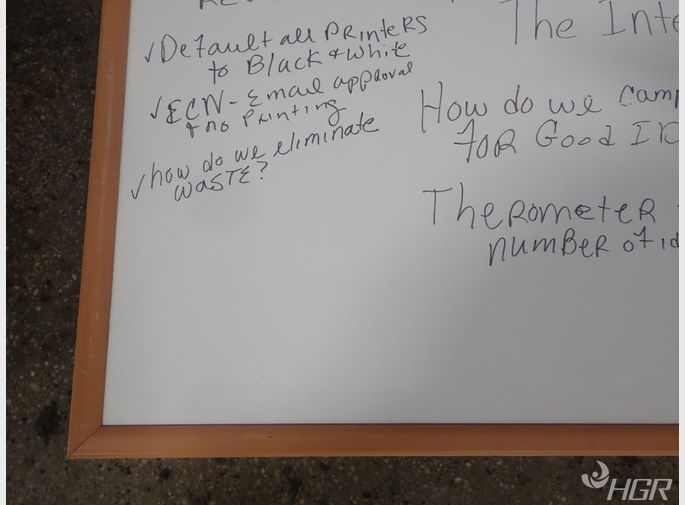 ✓Default all PRinteRs
to Black & White
✓ECN - Email approval
& no Printing
✓how do we eliminate
WASTE?
The Inte
How do we camp
foR Good ID
TheRometeR
numBeR of id
HGR